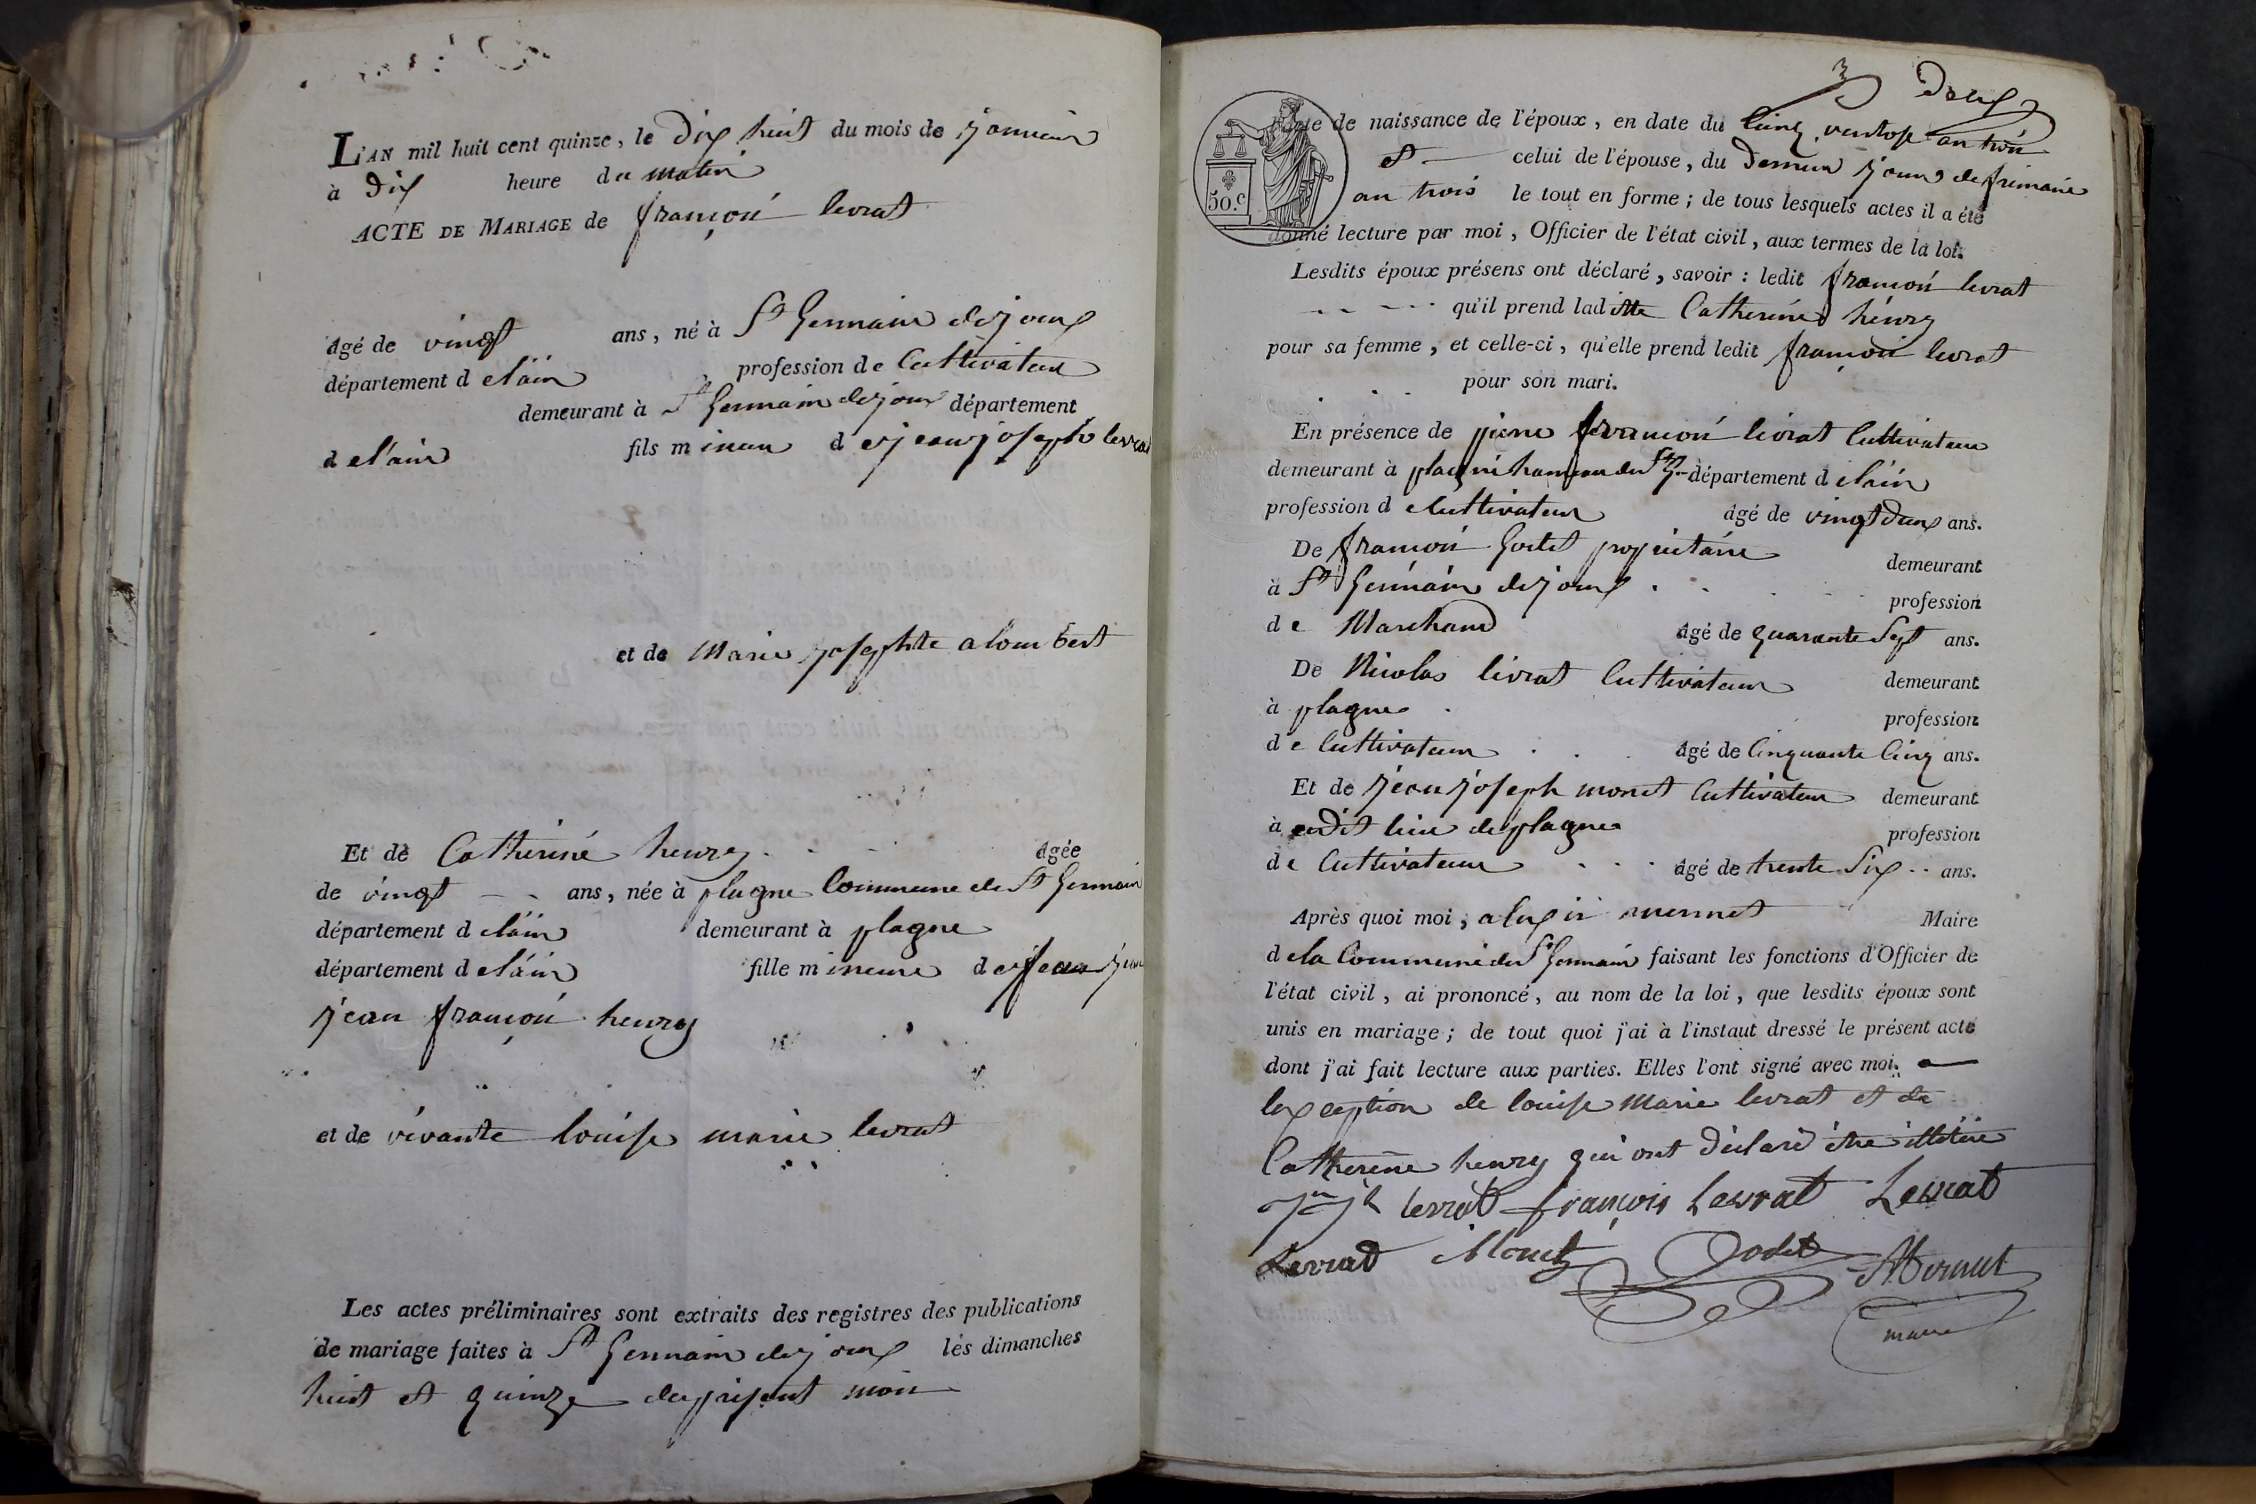 L'AN mil huit cent quinze, le dix huit du mois de janvier
à dix heure du matin
ACTE DE MARIAGE de françois levrat
âgé de vingt ans, né à St Germain de joux
département de l'ain profession de Cultivateur
demeurant à St Germain de joux département
de l'ain fils mineur de jean joseph levrat
et de Marie josephte alombert
Et de Catherine henry âgée
de vingt ans, née à plagne Commune de St Germain
département de l'ain demeurant à plagne
département de l'ain fille mineure de
jean françois henry
et de vivante louise marie levrat
Les actes préliminaires sont extraits des registres des publications
de mariage faites à St Germain de joux les dimanches
huit et quinze du présent mois
deux
Acte de naissance de l'époux, en date du cinq ventose an trois
et celui de l'épouse, du dernier jour de frimaire
50.c an trois le tout en forme; de tous lesquels actes il a été
donné lecture par moi, Officier de l'état civil, aux termes de la loi.
Lesdits époux présens ont déclaré, savoir: ledit françois levrat
qu'il prend laditte Catherine henry
pour sa femme, et celle-ci, qu'elle prend ledit françois levrat
pour son mari.
En présence de pierre françois livrat Cultivateur
demeurant à plagne hameau du St G. département de l'ain
profession de Cultivateur âgé de vingt deux ans.
De françois Godet propriétaire demeurant
à St Germain de joux profession
de Marchand âgé de quarante Sept ans.
De Nicolas livrat Cultivateur demeurant
à plagne profession
de Cultivateur âgé de Cinquante Cinq ans.
Et de jean joseph monet Cultivateur demeurant
à udit lieu de plagne profession
de Cultivateur âgé de trente Six ans.
Après quoi moi, alexis mermet Maire
de la Commune du St Germain faisant les fonctions d'Officier de
l'état civil, ai prononcé, au nom de la loi, que lesdits époux sont
unis en mariage; de tout quoi j'ai à l'instaut dressé le présent acte
dont j'ai fait lecture aux parties. Elles l'ont signé avec moi. a
lexception de louise Marie levrat et de
Catherine henry qui ont déclaré être illitéré
jn jh levrat françois Levrat Levrat
Levrat Monet Godet Mermet
maire